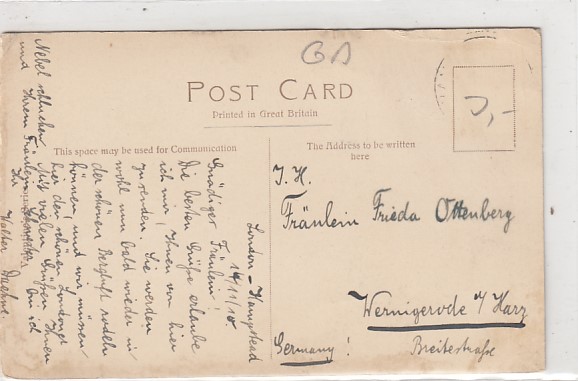 GA
POST CARD
Printed in Great Britain
This space may be used for Communication
The Address to be written
here
London-Hampstead
14/11/10
Gnädiger Fräulein!
Die besten Grüße erlaube
ich mir, Ihnen von hier
zu senden. Sie werden
wohl nun bald wieder in
der schönen Bergluft rodeln
können, und wir müssen
hier den schönen Londoner
Nebel schlucken. Mit vielen Grüßen Ihnen
und Ihrem Fräulein Schwester bin ich
Ihr
Walter
I. H.
Fräulein Frieda Ottenberg
Wernigerode a/Harz
Breitestraße
Germany!